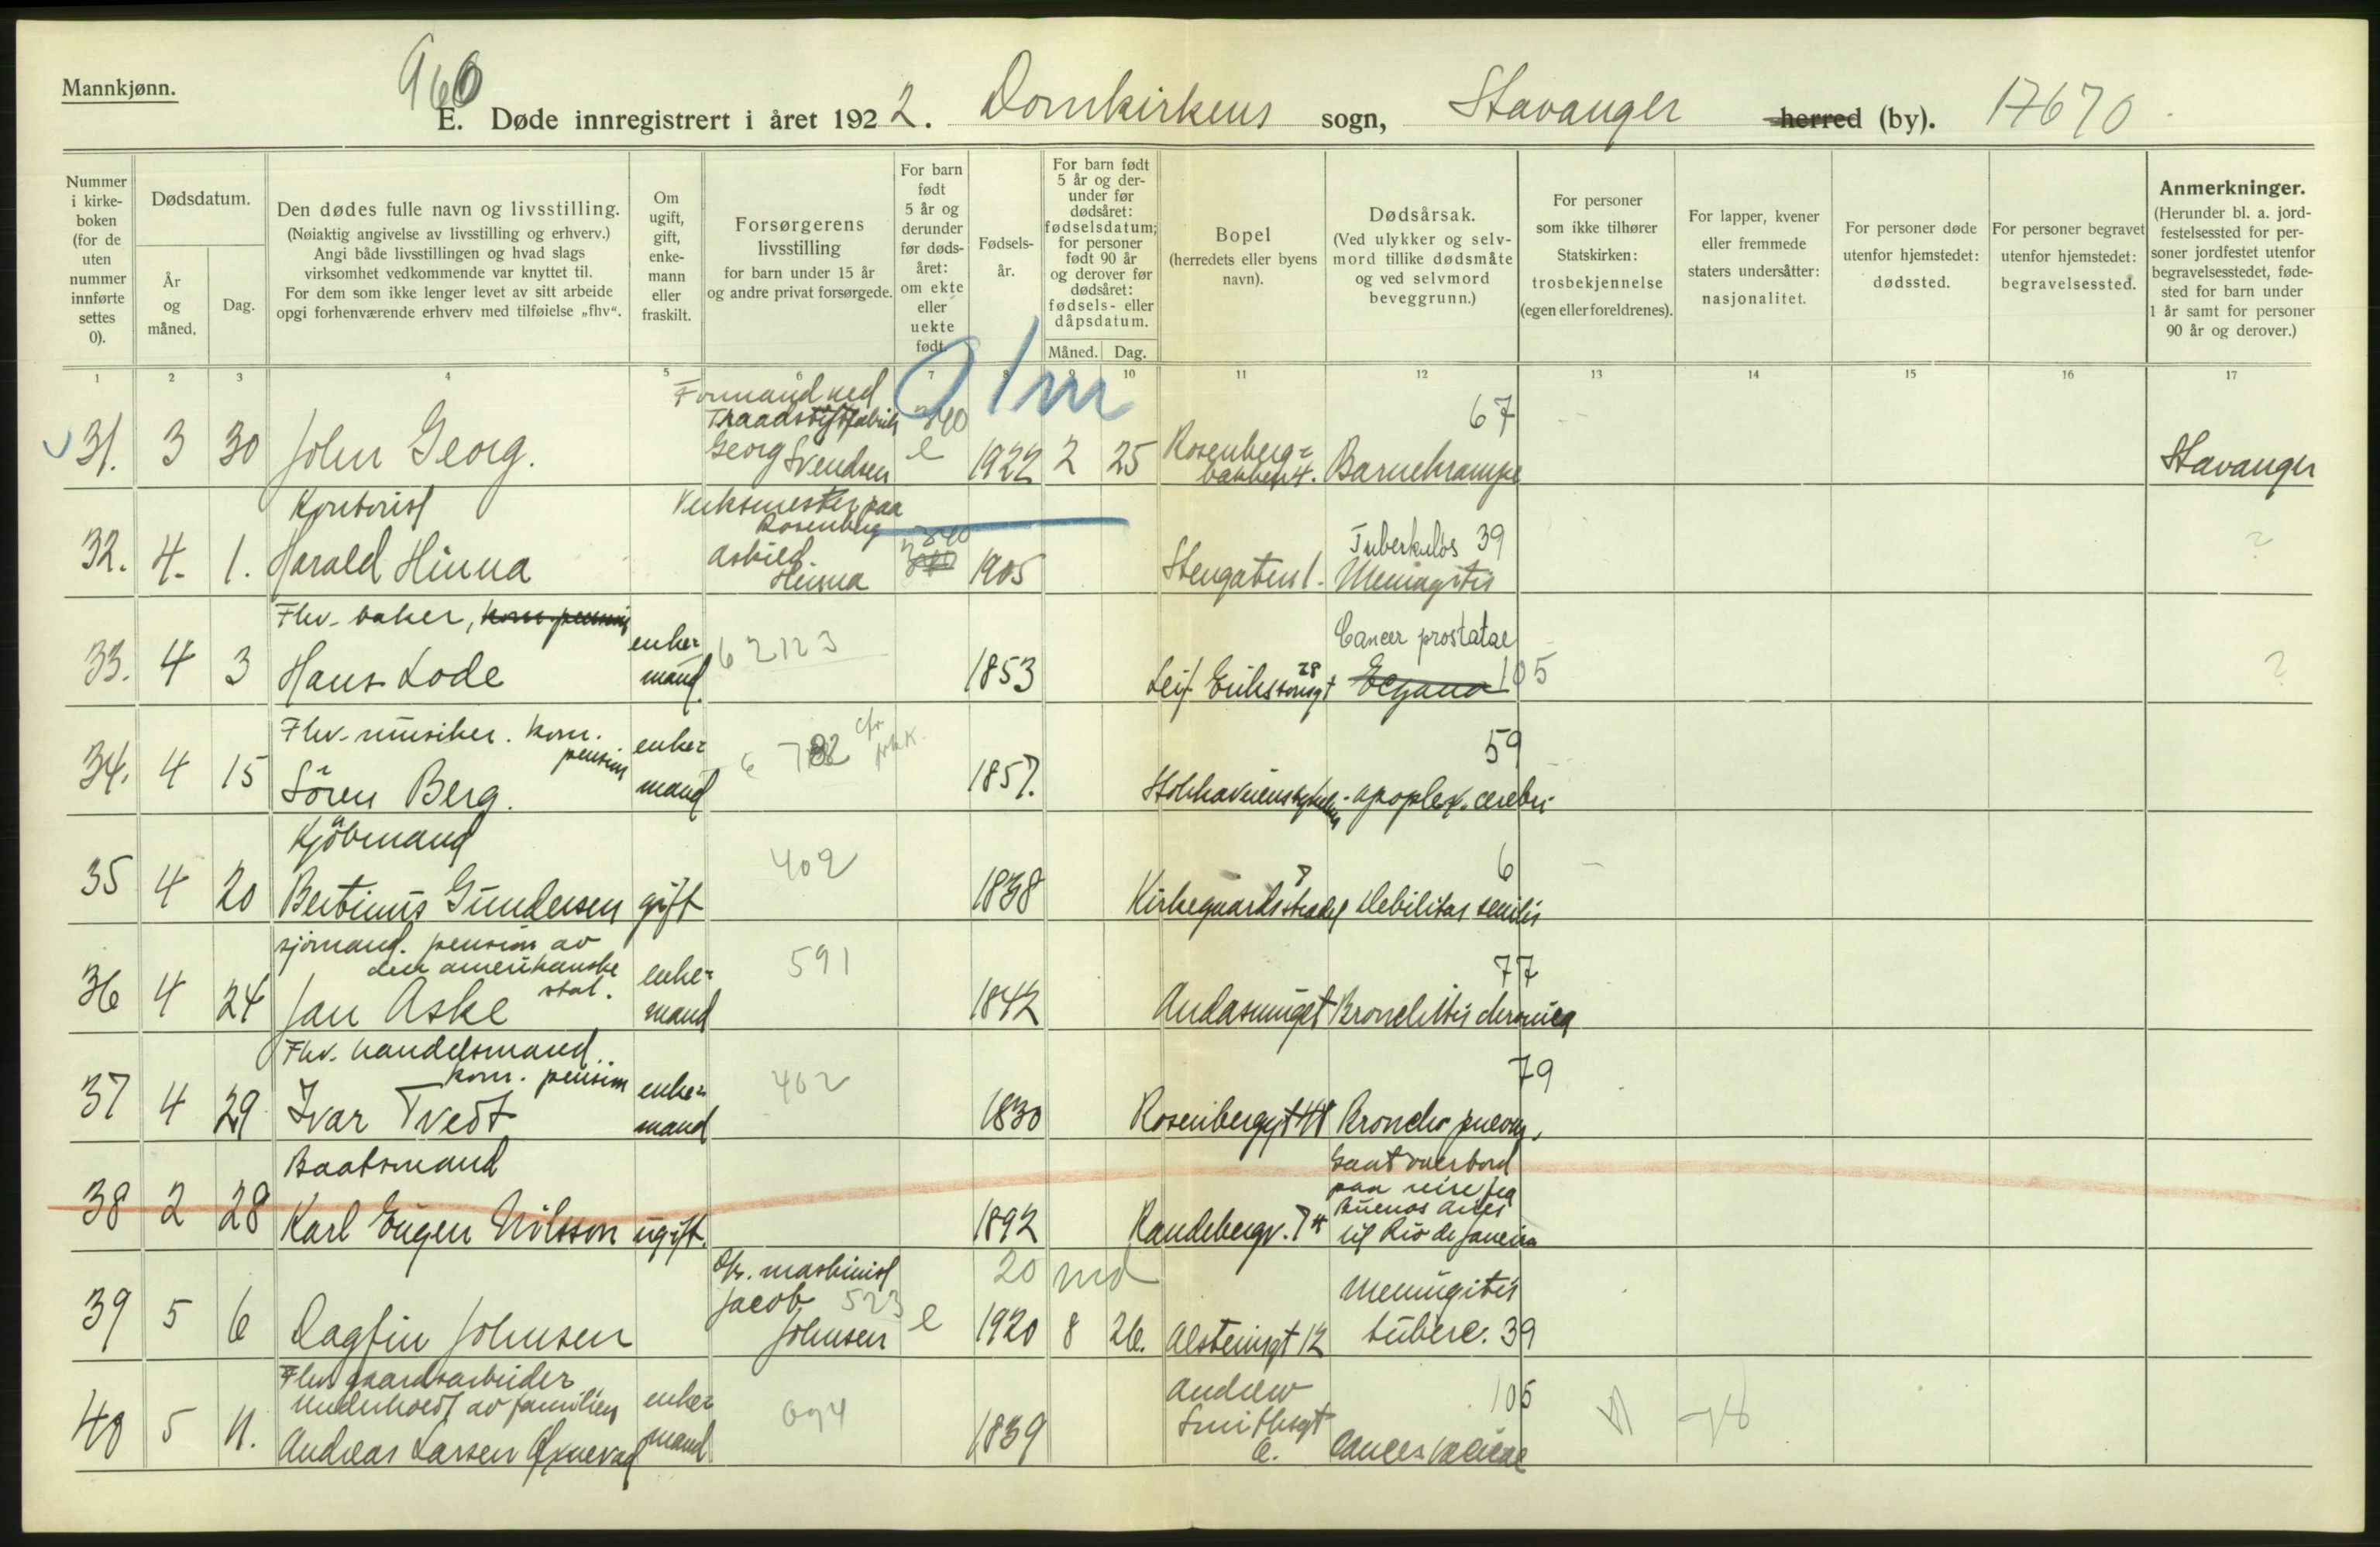 Mannkjønn.
960
E. Døde innregistrert i året 1922. Domkirkens sogn, Stavanger herred (by). 17670
Nummer i kirke-boken (for de uten nummer innførte settes 0).
Dødsdatum.
År og måned.
Dag.
Den dødes fulle navn og livsstilling.
(Nøiaktig angivelse av livsstilling og erhverv.)
Angi både livsstillingen og hvad slags
virksomhet vedkommende var knyttet til.
For dem som ikke lenger levet av sitt arbeide
opgi forhenværende erhverv med tilføielse „fhv“.
Om ugift, gift, enke-mann eller fraskilt.
Forsørgerens livsstilling
for barn under 15 år
og andre privat forsørgede.
For barn født 5 år og derunder før døds-året: om ekte eller uekte født.
Fødsels-år.
For barn født 5 år og der-under før dødsåret: fødselsdatum; for personer født 90 år og derover før dødsåret: fødsels- eller dåpsdatum.
Måned.
Dag.
Bopel
(herredets eller byens navn).
Dødsårsak.
(Ved ulykker og selv-mord tillike dødsmåte og ved selvmord beveggrunn.)
For personer som ikke tilhører Statskirken: trosbekjennelse (egen eller foreldrenes).
For lapper, kvener eller fremmede staters undersåtter: nasjonalitet.
For personer døde utenfor hjemstedet: dødssted.
For personer begravet utenfor hjemstedet: begravelsessted.
Anmerkninger.
(Herunder bl. a. jord-festelsessted for per-soner jordfestet utenfor begravelsesstedet, føde-sted for barn under 1 år samt for personer 90 år og derover.)
1 2 3 4 5 6 7 8 9 10 11 12 13 14 15 16 17
1m
Formand ved
Traadstiftfabrik 340 67
31. 3 30 John Georg. Georg Svendsen e 1922 2 25 Rosenberg-bakken 4. Barnekrampe Stavanger
Kontorist Verksmester paa
Rosenberg
Tuberkuløs 39
32. 4. 1. Harald Hinna Hinna 1905 Stengaten 1. Meningitis ?
Fhv. baker, kom. pension
Cancer prostatae
33. 4 3 Hans Lode enke-mand. 62123 1853 Leif Erikssonsgt 28 105 ?
Fhv. musiker. kom. pension
59
34. 4 15 Sören Berg. enke-mand 1857. apoplex. cerebri
Kjöbmand
402 6
35 4 20 Bertinus Gundersen gift 1838 Debilitas senilis
sjömand. pension av
den amerikanske
stat.
591 77
36 4 24 Jan Aske enke-mand 1842 Bronchitis chronica
Fhv. handelsmand.
kom. pension
402 79
37 4 29 Ivar Tvedt enke-mand 1830 Rosenberggt Broncho pneum.
Baatsmand
Gaat overbord
paa reise fra
Buenos Aires
38 2 28 Karl Eugen Nilsson ugift. 1892 Randebergv. til Rio de Janeiro
maskinist 20 md
Meningitis
39 5 6 Dagfin Johnsen Jacob 523 Johnsen e 1920 8 26. Alsteinsgt 12 tuberc. 39
Fhv. gaardsarbeider
Underholdt av familien
Andrew
694 105
40 5 11. Andreas Larsen enke-mand 1839 Smithsgt Cancer